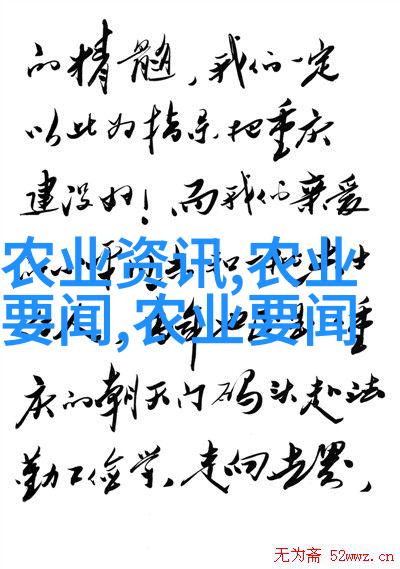 的精髓,我们一定
以此为指导把重庆
建设好!而我们亲爱
农业资讯,农业
要闻,农业要闻
和一
重
庆的朝天门码头赴法
勤工俭学,走向世界,
无为斋 52wwz.cn